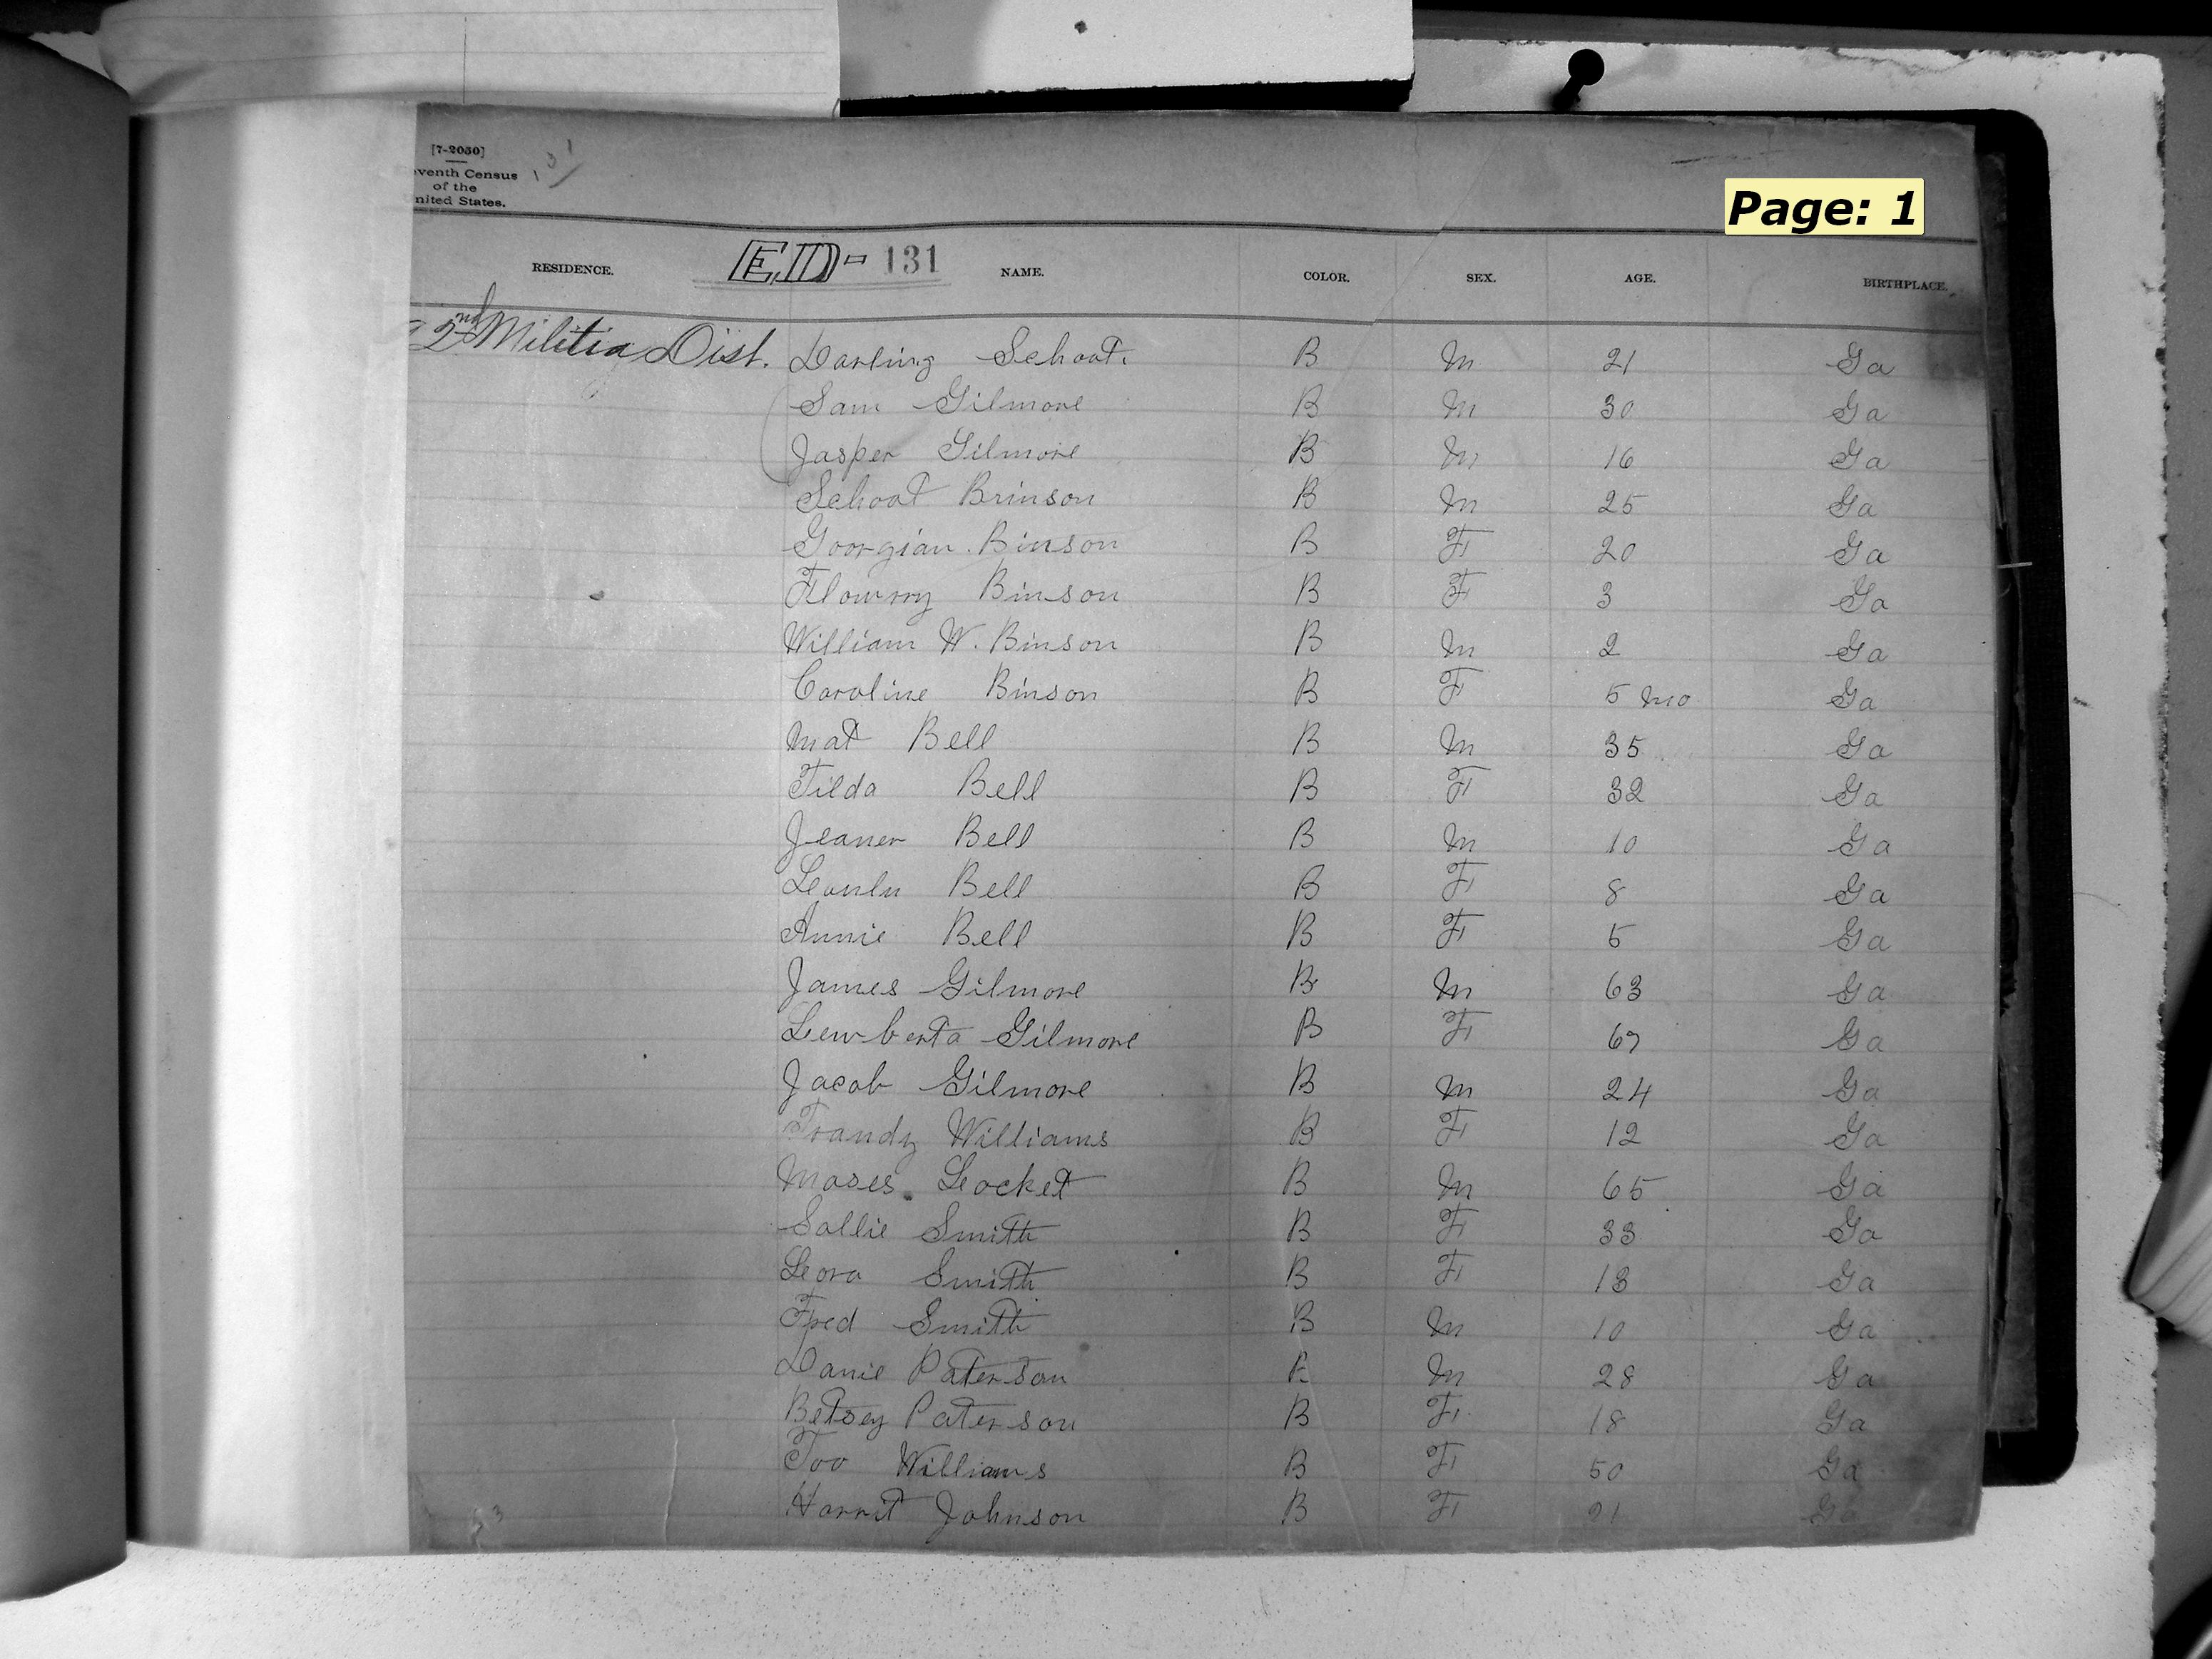 [7-2050]
venth Census
of the
nited States.
131
Page: 1
RESIDENCE. E.D- 131 NAME. COLOR. SEX. AGE. BIRTHPLACE.
2nd Militia Dist. Darling Schoat. B M 21 Ga
Sam Gilmore B M 30 Ga
Jasper Gilmore B M 16 Ga
Schoat Brinson B M 25 Ga
Goorgian Binson B F 20 Ga
Binson B F 3 Ga
William W. Binson B M 2 Ga
Caroline Binson B F 5 mo Ga
Mat Bell B M 35 Ga
Tilda Bell B F 32 Ga
Jeaner Bell B M 10 Ga
Bell B F 8 Ga
Annie Bell B F 5 Ga
James Gilmore B M 63 Ga
Lewberta Gilmore B F 67 Ga
Jacob Gilmore B M 24 Ga
Trandy Williams B F 12 Ga
Moses Locket B M 65 Ga
Sallie Smith B F 33 Ga
Leora Smith B F 13 Ga
Fred Smith B M 10 Ga
Danie Paterson B M 28 Ga
Betsey Paterson B F 18 Ga
Too Williams B F 50 Ga
Harrit Johnson B F 21 Ga